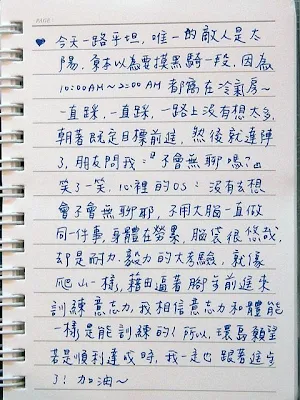 ♥ 今天一路平坦，唯一的敵人是太
陽，原本以為要摸黑騎一段，因為
10:00AM~2:00AM 都窩在冷氣房~
一直踩，一直踩，一路上沒有想太多，
朝著既定目標前進，然後就達陣
了，朋友問我：『會無聊嗎？』
笑了一笑，心裡的OS：沒有去想
會不會無聊耶，不用大腦一直做
同一件事，身體在勞累，腦袋很悠哉，
却是耐力、毅力的大考驗，就像
爬山一樣，藉由逼著腳步前進來
訓練意志力，我相信意志力和體能
一樣是能訓練的！所以，環島願望
若是順利達成時，我一定也跟著進步
了！加油~